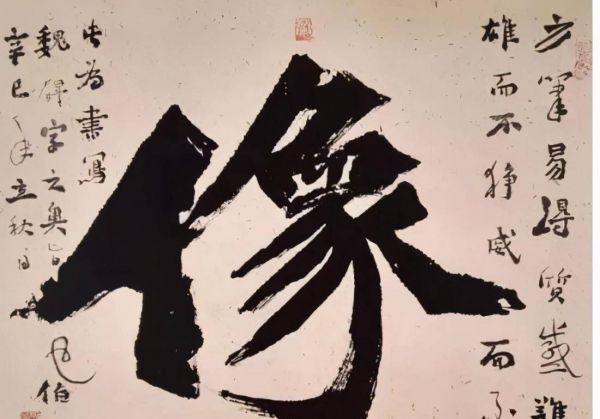 方筆易得質感難
雄而不狰威而不
像
此為書寫
魏碑字之奥旨
辛巳年立秋日
伯